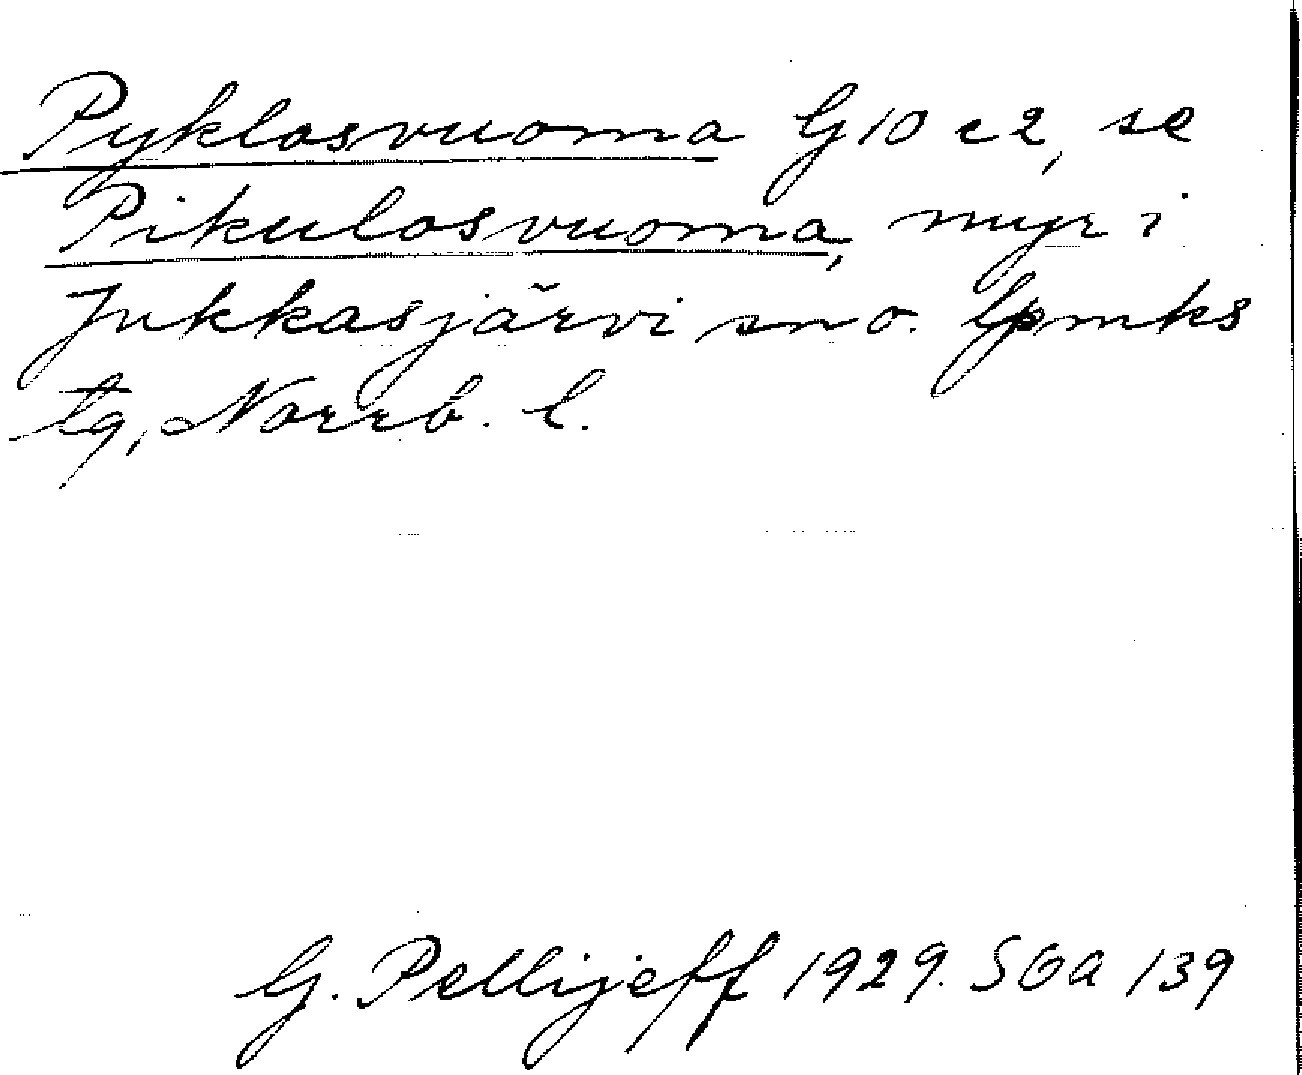 Pyklosvuoma G10 c2, se
Pikulosvuoma, myr i
Jukkasjärvi sn o. lpmks
tg, Norrb. l.
G. Pellijeff 1929. SOA 139